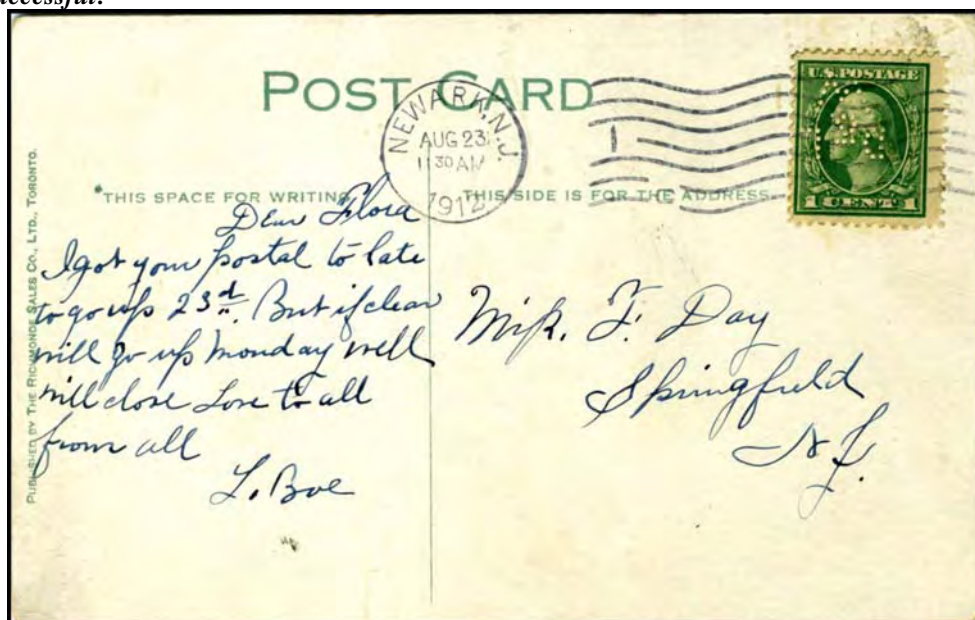 uccessful.
POST CARD
NEWARK, N.J.
AUG 23
11 30 AM
1912
U.S. POSTAGE
1 CENT 1
THIS SPACE FOR WRITING
THIS SIDE IS FOR THE ADDRESS.
PUBLISHED BY THE RICHMONDE SALES CO., LTD., TORONTO.
Dear Flora
I got your postal to late
to go up 23d. But if clear
will go up Monday well
will close Love to all
from all
L. Boe
Miss. F. Day
Springfield
N J.